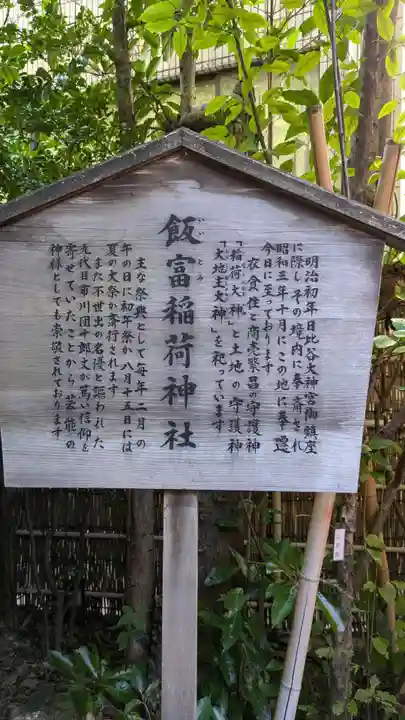 明治初年日比谷大神宮御鎮座
に際し その境内に奉斎され
昭和三年十月にこの地に奉遷
今日に至っております
衣食住と商売繁昌の守護神
「稲荷大神」と土地の守護神
「大地主大神」を祀っています
飯富稲荷神社
いいとみ
主な祭典として毎年 二月の
午の日に初午祭か八月十五日には
夏の大祭か斎行されます
また不世出の名優と謳われた
九代目市川団十郎丈が篤い信仰を
寄せていたことから芸能の
神様としても崇敬されております